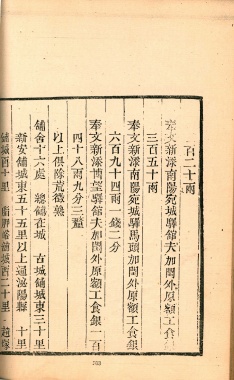 百二十兩
奉文新添南陽宛城驛館夫加閏外原額工食銀
三百五十兩
奉文新添南陽宛城驛馬頭加閏外原額工食銀
六百九十四兩一錢二分
奉文新添博望驛館夫加閏外原額工食銀一百
四十八兩九分三釐
以上俱除荒徵熟
舖舍十六處 總舖在城 古城舖城東三十里
新安舖城東五十五里以上通泌陽縣 十里
舖城西十里 城西二十里
763